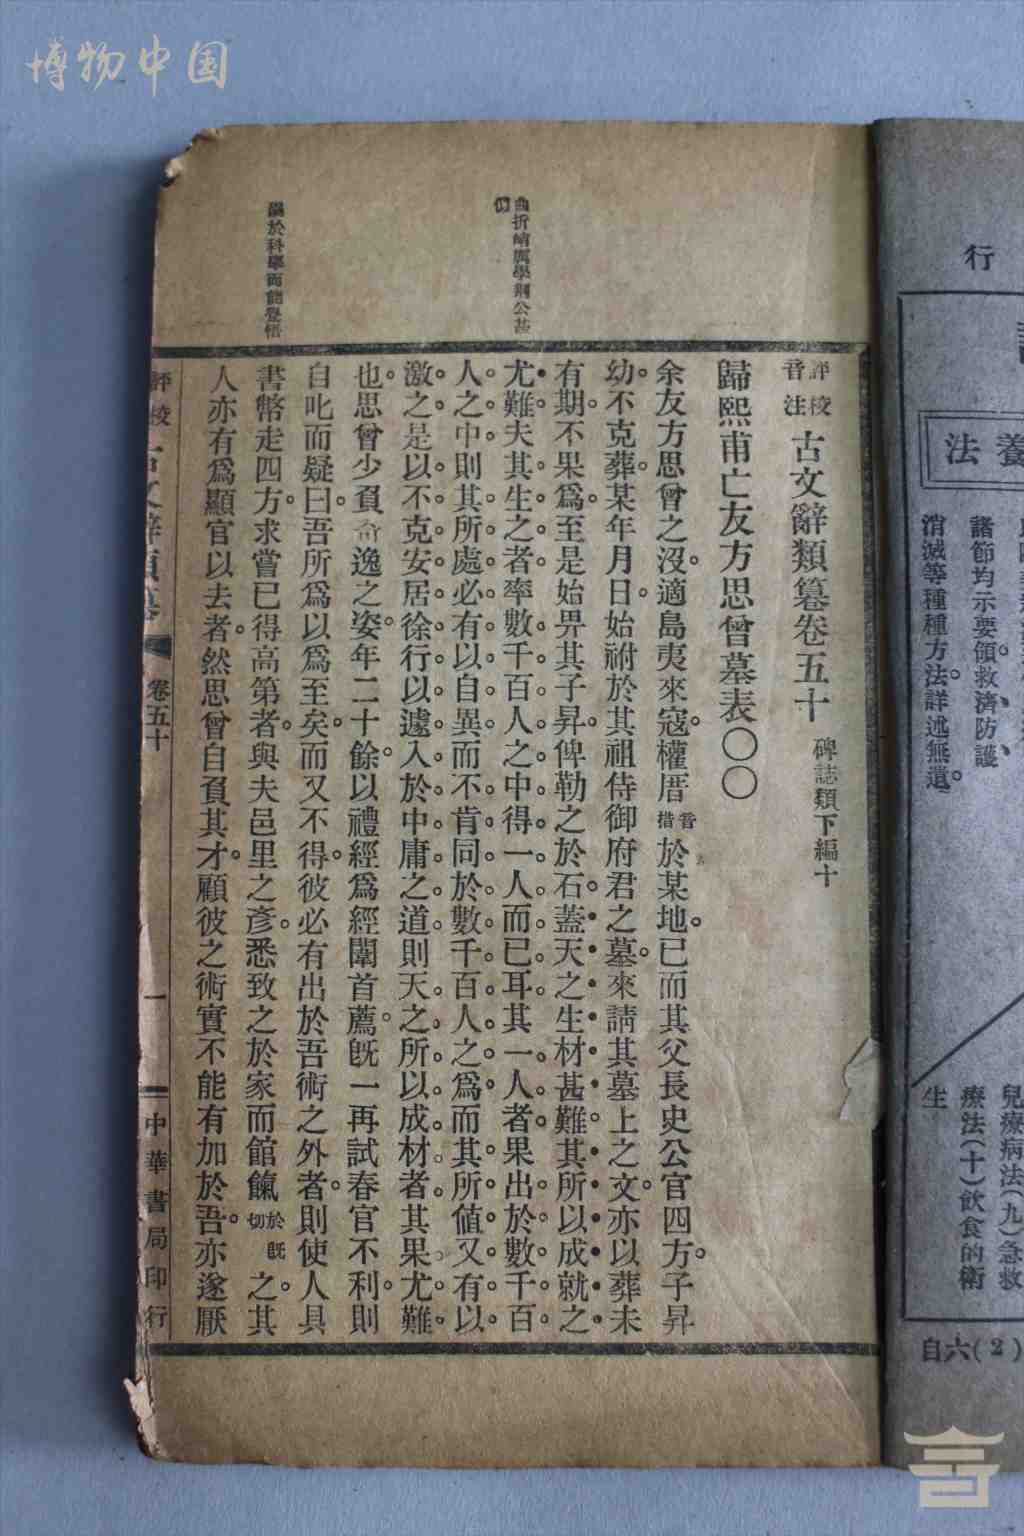 博物中国
曲折峭厲學荊公甚
溺於科舉而能覺悟
評校音注 古文辭類篹卷五十 碑誌類下編十
歸熙甫亡友方思曾墓表〇〇
余友方思曾之沒。適島夷來寇。權厝音措於某地。已而其父長史公官四方。子昇
幼。不克葬。某年月日。始祔於其祖侍御府君之墓。來請其墓上之文。亦以葬未
有期。不果爲。至是始畀其子昇。俾勒之於石。蓋天之生材甚難。其所以成就之
尤難。夫其生之者。率數千百人之中。得一人而已耳。其一人者。果出於數千百
人之中。則其所處必有以自異。而不肯同於數千百人之爲。而其所値又有以
激之。是以不克安居徐行。以遽入於中庸之道。則天之所以成材者。其果尤難
也。思曾少負奇逸之姿。年二十餘。以禮經爲經闈首薦。旣一再試春官不利。則
自叱而疑曰。吾所爲以爲至矣。而又不得。彼必有出於吾術之外者。則使人具
書幣走四方。求嘗已得高第者。與夫邑里之彥。悉致之於家而館餼於旣切之。其
人亦有爲顯官以去者。然思曾自負其才。顧彼之術實不能有加於吾。亦遂厭
評校
卷五十
一
中華書局印行
行
養法
諸節均示要領救濟防護
消滅等種種方法詳述無遺
兒療病法(九)急救
療法(十)飮食的衛
生
自六(2)